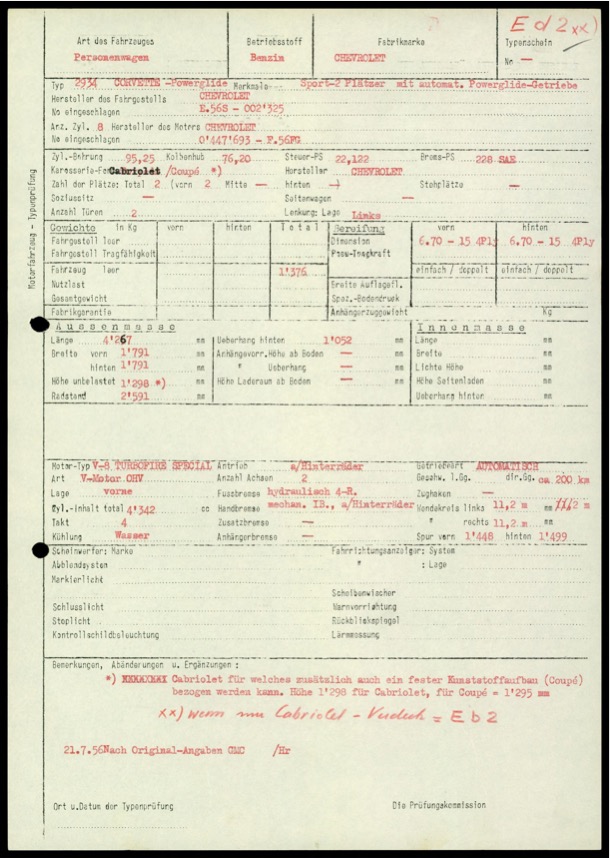 E d 2 xx)
Art des Fahrzeuges Betriebsstoff Fabrikmarke Typenschein
Personenwagen Benzin CHEVROLET No —
Typ 2934 CORVETTE -Powerglide Merkmale Sport-2 Plätzer mit automat. Powerglide-Getriebe
Hersteller des Fahrgestells CHEVROLET
No eingeschlagen E.56S - 002'325
Anz. Zyl. 8 Hersteller des Motors CHEVROLET
No eingeschlagen 0'447'693 - F.56FG
Zyl.-Bohrung 95,25 Kolbenhub 76,20 Steuer-PS 22,122 Brems-PS 228 SAE
Karosserie-Form Cabriolet /Coupé *) Hersteller CHEVROLET
Zahl der Plätze: Total 2 (vorn 2 Mitte — hinten —) Stehplätze —
Soziussitz — Seitenwagen —
Anzahl Türen 2 Lenkung: Lage Links
Motorfahrzeug - Typenprüfung
Gewichte in Kg vorn hinten Total Bereifung vorn hinten
Fahrgestell leer Dimension 6.70 - 15 4Ply 6.70 - 15 4Ply
Fahrgestell Tragfähigkeit Pneu-Tragkraft
Fahrzeug leer 1'376 einfach / doppelt einfach / doppelt
Nutzlast Breite Auflagefl.
Gesamtgewicht Spez. Bodendruck
Fabrikgarantie Anhängerzuggewicht Kg
Aussenmasse Innenmasse
Länge 4'267 mm Ueberhang hinten 1'052 mm Länge mm
Breite vorn 1'791 mm Anhängevorr. Höhe ab Boden — mm Breite mm
hinten 1'791 mm " Ueberhang — mm Lichte Höhe mm
Höhe unbelastet 1'298 *) mm Höhe Laderaum ab Boden — mm Höhe Seitenladen mm
Radstand 2'591 mm Ueberhang hinten mm
Motor-Typ V-8 TURBOFIRE SPECIAL Antrieb a/Hinterräder Getriebeart AUTOMATISCH
Art V-Motor OHV Anzahl Achsen 2 Geschw. 1.Gg. dir.Gg. ca 200 km
Lage vorne Fussbremse hydraulisch 4-R. Zughaken —
Zyl.-Inhalt total 4'342 cc Handbremse mechan. IB., a/Hinterräder Wendekreis links 11,2 m
Takt 4 Zusatzbremse — " rechts 11,2 m
Kühlung Wasser Anhängerbremse — Spur vorn 1'448 hinten 1'499
Scheinwerfer: Marke Fahrrichtungsanzeiger: System
Abblendsystem " : Lage
Markierlicht
Scheibenwischer
Schlusslicht Warnvorrichtung
Stoplicht Rückblickspiegel
Kontrollschildbeleuchtung Lärmmessung
Bemerkungen, Abänderungen u. Ergänzungen :
*) Cabriolet für welches zusätzlich auch ein fester Kunststoffaufbau (Coupé)
bezogen werden kann. Höhe 1'298 für Cabriolet, für Coupé = 1'295 mm
xx) wenn nur Cabriolet - Verdeck = E b 2
21.7.56 Nach Original-Angaben GMC /Hr
Ort u.Datum der Typenprüfung Die Prüfungskommission